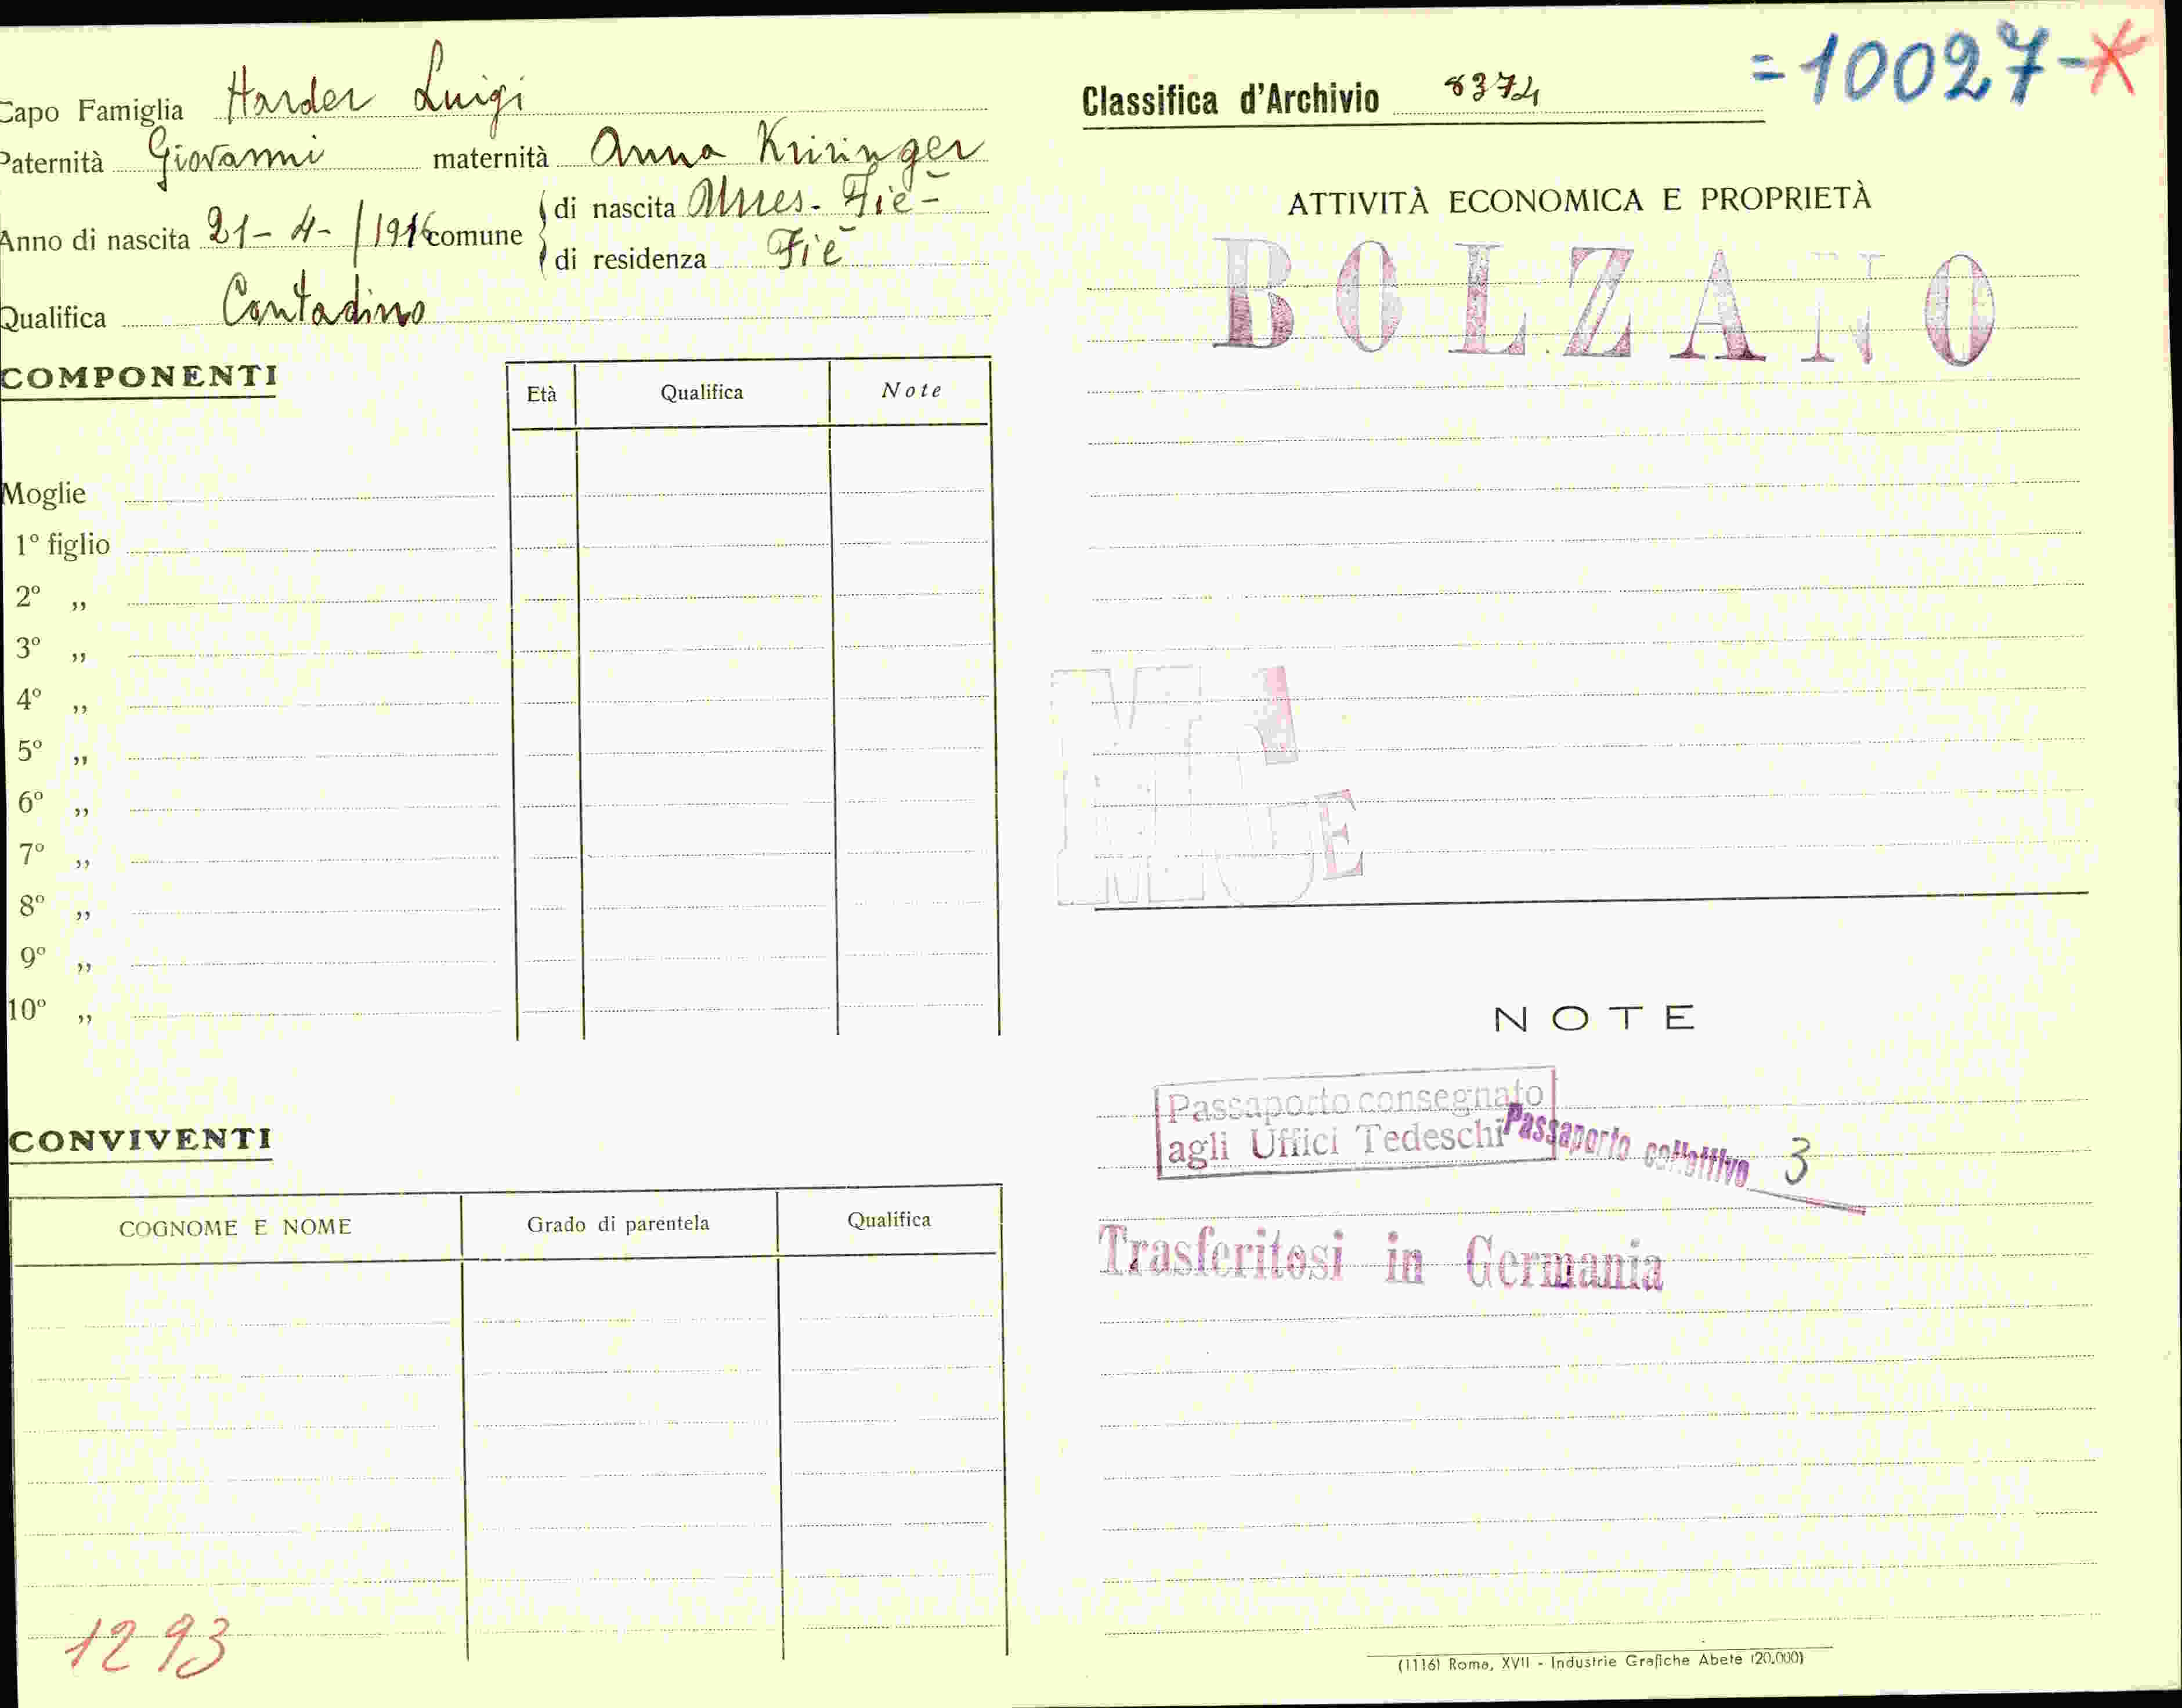 Capo Famiglia Harder Luigi
Paternità Giovanni maternità Anna Kriringer
Anno di nascita 21-4-/1916 comune di nascita Fiè-
di residenza Fiè
Qualifica Contadino
COMPONENTI
Età Qualifica Note
Moglie
1º figlio
2º ,,
3º ,,
4º ,,
5º ,,
6º ,,
7º ,,
8º ,,
9º ,,
10º ,,
CONVIVENTI
COGNOME E NOME Grado di parentela Qualifica
1293
Classifica d'Archivio 8374
=10027-
ATTIVITÀ ECONOMICA E PROPRIETÀ
BOLZANO
NOTE
Passaporto consegnato
agli Uffici Tedeschi
Passaporto collettivo 3
Trasferitosi in Germania
(1116) Roma, XVII - Industrie Grafiche Abete (20.000)